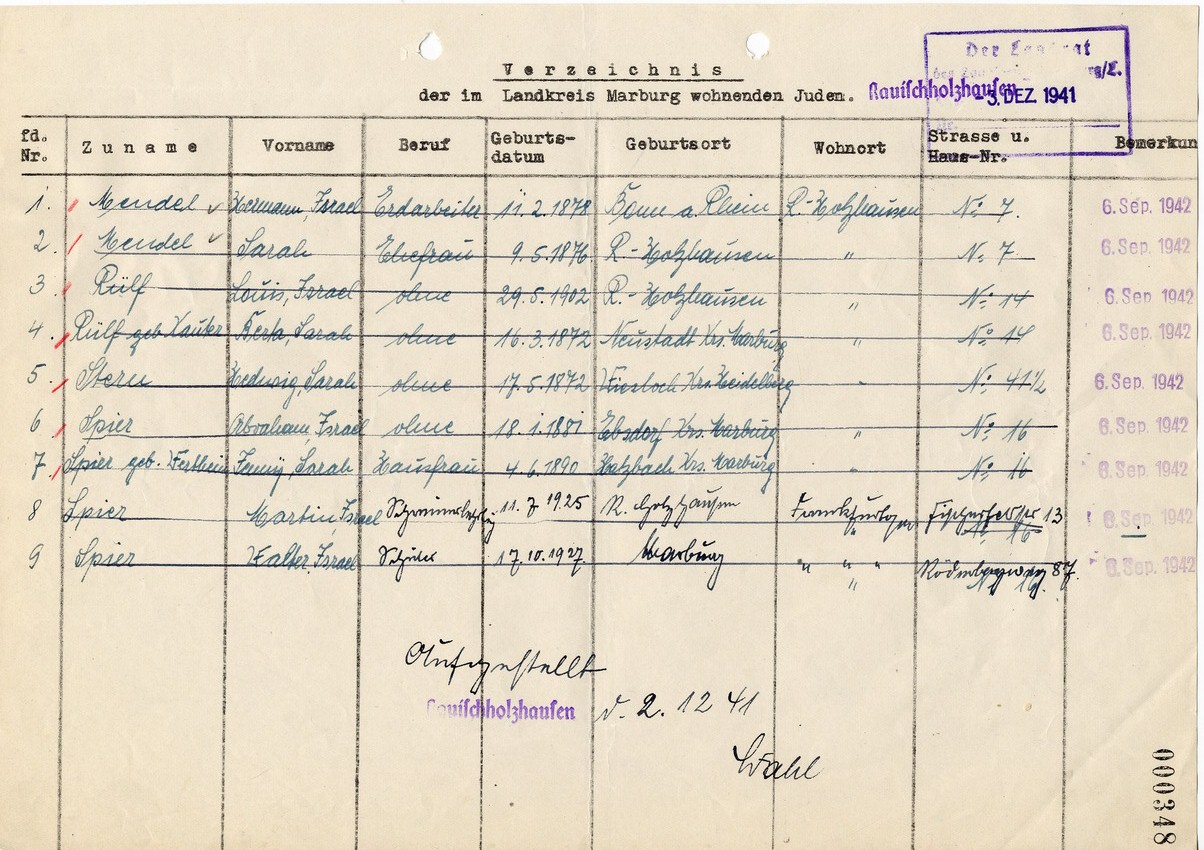 Verzeichnis
der im Landkreis Marburg wohnenden Juden. Rauischholzhausen
Der Landrat
-3. DEZ. 1941
fd. Nr. Zuname Vorname Beruf Geburts-datum Geburtsort Wohnort Strasse u. Haus-Nr. Bemerkun
1. Mendel Hermann, Israel Erdarbeiter 11.2.1878 Bonn a. Rhein R.-Holzhausen No 7. 6. Sep. 1942
2. Mendel Sarah Ehefrau 9.5.1876 R.-Holzhausen " No 7 6. Sep. 1942
3 Rülf Louis, Israel ohne 29.5.1902 R.-Holzhausen " No 14 6. Sep. 1942
4. Rülf geb. Berta, Sarah ohne 16.3.1872 Neustadt Krs. Marburg " No 14 6. Sep. 1942
5. Stern Hedwig, Sarah ohne 17.5.1872 Wiesloch Krs. Heidelberg " No 41 1/2 6. Sep. 1942
6 Spier Abraham, Israel ohne 18.1.1881 Ebsdorf Krs. Marburg " No 16 6. Sep. 1942
7 Spier geb. Wertheim Jenny, Sarah Hausfrau 4.6.1890 Hatzbach Krs. Marburg " No 16 6. Sep. 1942
8 Spier Martin Israel Schreinerlehrling 11.7.1925 R. Holzhausen " 13 No 16 6. Sep. 1942
9 Spier Walter, Israel Schüler 17.10.1927. Marburg " " " " 87. No 16. 6. Sep. 1942
Aufgestellt
Rauischholzhausen d. 2.12 41
Wahl
000348